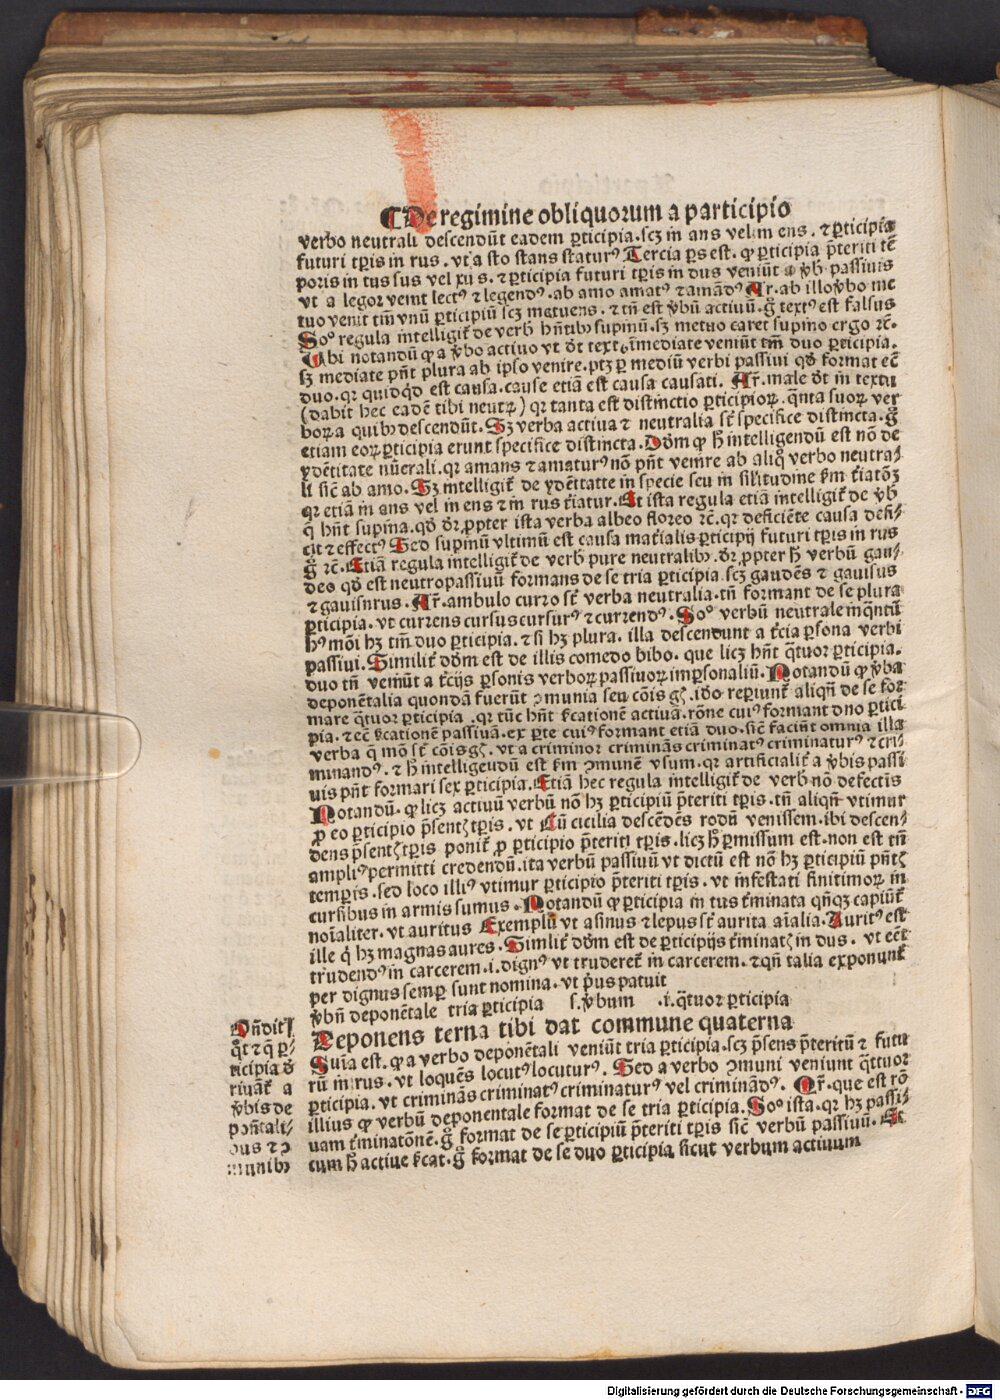 ¶ De regimine obliquorum a participio
verbo neutrali descendūt eadem ꝑticipia. scꝫ in ans vel in ens. ⁊ ꝑticipia
futuri tp̄is in rus. vt a sto stans staturꝰ Tercia ꝑs est. ꝙ ꝑticipia p̄teriti tē
poris in tus sus vel xus. ⁊ ꝑticipia futuri tp̄is in dus veniūt a v̄b passiuis
vt a legor venit lectꝰ ⁊ legendꝰ. ab amo amatꝰ ⁊ amādꝰ Ar̄. ab illo v̄bo me
tuo venit tm̄ vnū ꝑticipiū scꝫ metuens. ⁊ tn̄ est v̄bū actiuū. g̊ textꝰ est falsus
Soᵒ regula intelligit̄ de verb hn̄tibꝫ supinū. sꝫ metuo caret supino ergo ⁊c̄.
Ubi notandū ꝙ a v̄bo actiuo vt dt̄ textꝰ īmediate veniūt tm̄ duo ꝑticipia.
sꝫ mediate pn̄t plura ab ipso venire. ptꝫ ꝑ mediū verbi passiui qd̄ format ec̄
duo. qꝛ quidqd̄ est causa. cause etiā est causa causati. Ar̄. male dt̄ in textu
(dabit hec eadē tibi neutꝝ) qꝛ tanta est distinctio ꝑticipioꝝ. q̄nta suoꝝ ver
boꝝ a quibꝫ descendūt. Sꝫ verba actiua ⁊ neutralia st̄ specifice distincta. g̊
etiam eoꝝ ꝑticipia erunt specifice distincta. Dd̄m ꝙ h̄ intelligendū est nō de
ydētitate nūerali. qꝛ amans ⁊ amaturꝰ nō pn̄t venire ab aliq̊ verbo neutra⸗
li sic̄ ab amo. Sꝫ intelligit̄ de ydētitate in specie seu in silitudine ẜm t̄iatōꝫ
qꝛ etiā in ans vel in ens ⁊ in rus t̄iatur. Et ista regula etiā intelligit̄ de v̄b
q̄ hn̄t supina. qd̄ dr̄ ꝓpter ista verba albeo floreo ⁊c̄. qꝛ deficiēte causa defi⸗
cit ⁊ effectꝰ Sed supinū vltimū est causa mat̄ialis ꝑticipij futuri tp̄is in rus
g̊ ⁊c̄. Etiā regula intelligit̄ de verb pure neutralibꝫ. dr̄ ꝓpter h̄ verbū gau⸗
des qd̄ est neutropassiuū formans de se tria ꝑticipia. scꝫ gaudēs ⁊ gauisus
⁊ gauisurus. Ar̄. ambulo curro st̄ verba neutralia. tn̄ formant de se plura
ꝑticipia. vt currens cursus cursurꝰ ⁊ currendꝰ. Soᵒ verbū neutrale inq̄ntū
hꝰ mōi hꝫ tm̄ duo ꝑticipia. ⁊ si hꝫ plura. illa descendunt a t̄cia ꝑsona verbi
passiui. Similit̄ dd̄m est de illis comedo bibo. que licꝫ hn̄t q̄tuor ꝑticipia.
duo tn̄ veniūt a t̄cijs ꝑsonis verboꝝ passiuoꝝ imꝑsonaliū. Notandū ꝙ v̄ba
deponētalia quondā fuerūt ꝯmunia seu cōis gꝫ. iō reꝑiunt̄ aliqn̄ de se for
mare q̄tuor ꝑticipia. qꝛ tūc hn̄t ẜcationē actiuā. rōne cuiꝰ formant duo ꝑtici
pia. ⁊ ec̄ ẜcationē passiuā. ex parte cuiꝰ formant etiā duo. sic̄ faciūt omnia illa
verba q̄ mō st̄ cōis gꝫ. vt a criminor crimināns criminatꝰ criminaturꝰ ⁊ cri⸗
minandꝰ. ⁊ h̄ intelligendū est ẜm ꝯmunē vsum. qꝛ artificialit̄ a v̄bis passi
uis pn̄t formari sex ꝑticipia. Etiā hec regula intelligit̄ de verb nō defectīs
Notandū. ꝙ licꝫ actiuū verbū nō hꝫ ꝑticipiū p̄teriti tp̄is. tn̄ aliqn̄ vtimur
ꝓ eo ꝑticipio p̄sentꝫ tp̄is. vt Cū cicilia descēdēs rodū venissem. ibi descen⸗
dens p̄sentꝫ tp̄is ponit̄ ꝓ ꝑticipio p̄teriti tp̄is. licꝫ h̄ ꝑmissum est. non est tn̄
ampliꝰ permitti credendū. ita verbū passiuū vt dictū est nō hꝫ ꝑticipiū pn̄tꝫ
temꝑis. sed loco illiꝰ vtimur ꝑticipio p̄teriti tp̄is. vt infestati finitimoꝝ in
cursibus in armis sumus. Notandū ꝙ ꝑticipia in tus t̄minata qn̄qꝫ capiūt̄
noīaliter. vt auritus Exemplū vt asinus ⁊ lepus st̄ aurita aīalia. Auritꝰ est
ille q̄ hꝫ magnas aures. Similit̄ dd̄m est de ꝑticipijs t̄minatꝫ in dus. vt ec̄
trudendꝰ in carcerem .i. dignꝰ vt truderet̄ in carcerem. ⁊ qn̄ talia exponunt̄
per dignus semꝑ sunt nomina. vt p̄us patuit
v̄bū deponētale tria ꝑticipia s. v̄bum .i. q̄tuor ꝑticipia
Deponens terna tibi dat commune quaterna
Suīa est. ꝙ a verbo deponētali veniūt tria ꝑticipia. scꝫ p̄sens p̄teritū ⁊ futu
rū in rus. vt loquēs locutꝰ locuturꝰ. Sed a verbo ꝯmuni veniunt q̄ttuor
ꝑticipia. vt crimināns criminatꝰ criminaturꝰ vel crimināndꝰ. Qr̄. que est rō
illius ꝙ verbū deponentale format de se tria ꝑticipia. Soᵒ ista. qꝛ hꝫ passi⸗
uam t̄minatōnē. g̊ format de se ꝑticipiū p̄teriti tp̄is sic̄ verbū passiuū. Et
cum h̄ actiue ẜcat. g̊ format de se duo ꝑticipia sicut verbum actiuum
On̄dit
q̊t ⁊ q̄ ꝑ⸗
ticipia d
riuāt̄ a
v̄bis de
ponētali⸗
bus ⁊ ꝯ
munibꝫ
Digitalisierung gefördert durch die Deutsche Forschungsgemeinschaft - DFG